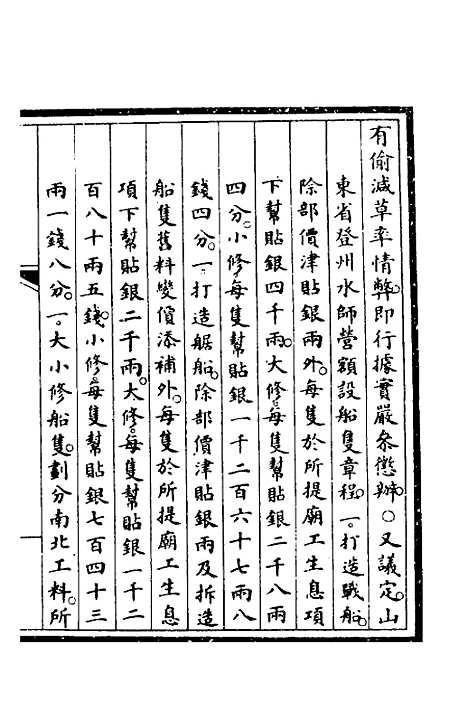 有偷減草率情弊。即行據實嚴參懲辦。○又議定山
東省登州水師營額設船隻章程。一。打造戰船。
除部價津貼銀兩外。每隻於所提廟工生息項
下幫貼銀四千兩。大修。每隻幫貼銀二千八兩
四分。小修。每隻幫貼銀一千二百六十七兩八
錢四分。一。打造艍船。除部價津貼銀兩及拆造
船隻舊料變價添補外。每隻於所提廟工生息
項下幫貼銀二千兩。大修。每隻幫貼銀一千二
百八十兩五錢。小修。每隻幫貼銀七百四十三
兩一錢八分。一。大小修船隻。劃分南北工料。所